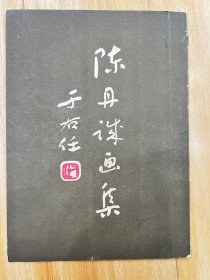 陈丹诚画集
于右任